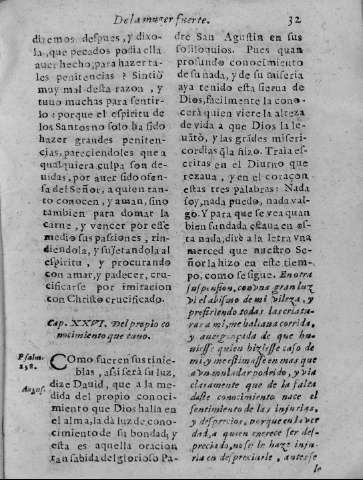 De la muger fuerte. 32
diremos despues, y dixo-
la, que pecados podia ella
auer hecho, para hazer ta-
les penitencias? Sintiò
muy mal desta razon, y
tuuo muchas para sentir-
lo: porque el espiritu de
los Santos no solo ha sido
hazer grandes peniten-
cias, pareciendoles que a
qualquiera culpa son de-
uidas, por auer sido ofen-
sa del Señor, a quien tan-
to conocen, y aman, sino
tambien para domar la
carne, y vencer por esse
medio sus passiones, rin-
diendola, y sujetandola al
espiritu, y procurando
con amar, y padecer, cru-
cificarse por imitacion
con Christo crucificado.
Cap. XXVI. Del propio co
nocimiento que tuuo.
Psalm.
138.
COmo fueren sus tinie-
blas, assi serà su luz,
August.
dize Dauid, que a la me-
dida del propio conoci-
miento que Dios halla en
el alma, la dà luz de cono-
cimiento de su bondad, y
esta es aquella oracion
tan sabida del glorioso Pa-
dre San Agustin en sus
soliloquios. Pues quan
profundo conocimiento
de su nada, y de su miseria
aya tenido esta sierua de
Dios, facilmente la cono-
cerà quien viere la alteza
de vida a que Dios la le-
uãtò, y las grãdes miseri-
cordias q̃ la hizo. Traia es-
critas en el Diurno que
rezaua, y en el coraçon
estas tres palabras: Nada
soy, nada puedo, nada val-
go. Y para que se vea quan
bien fundada estaua en es-
ta nada, dirè a la letra vna
merced que nuestro Se-
ñor la hizo en este tiem-
po, como se sigue. En otra
suspension, con vna gran luz
vi el abismo de mi vileza, y
prefiriendo todas las criatu-
ras a mi, me hallaua corrida,
y auergonçada de que hu-
uiesse quien hiziesse caso de
mi, y me estimasse en mas que
a vn muladar podrido, y via
claramente que de la falta
deste conocimiento nace el
sentimiento de las injurias,
y desprecios, porque en la ver
dad, a quien merece ser des-
preciado, no se le haze inju-
ria en despreciarle, antes se
le